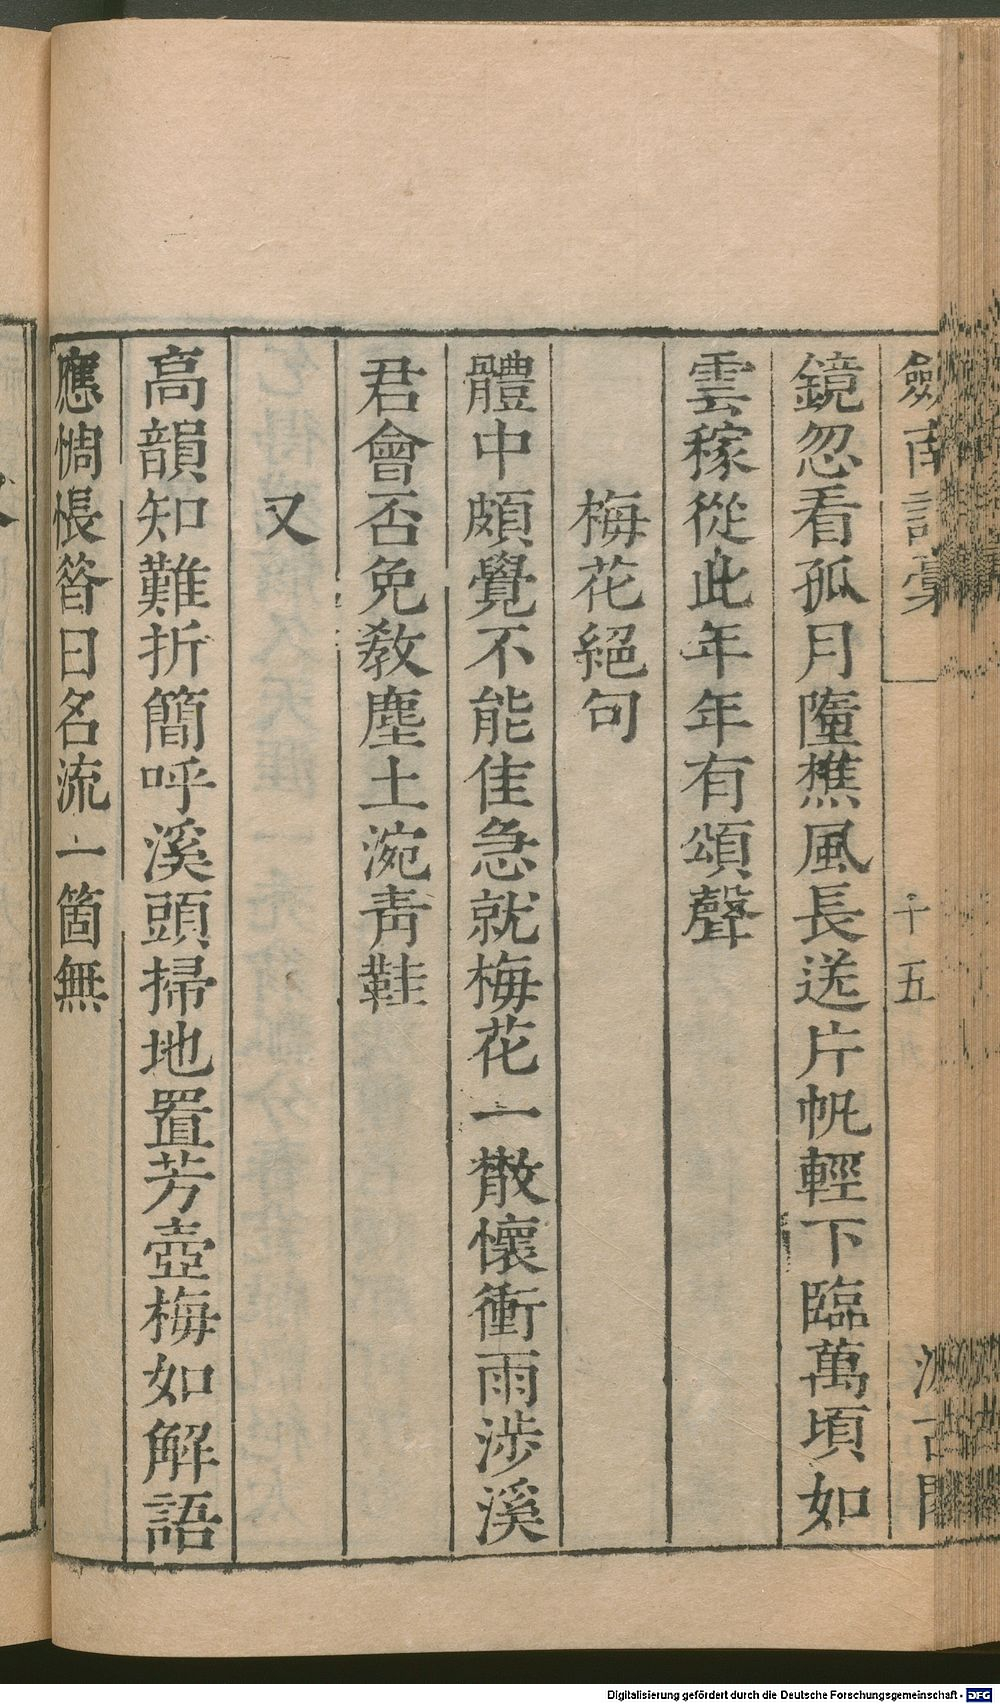 劍南詩稾 十五 汲古閣
鏡忽看孤月墮樵風長送片帆輕下臨萬頃如
雲稼從此年年有頌聲
梅花絕句
體中頗覺不能佳急就梅花一散懷衝雨涉溪
君會否免敎塵土涴靑鞋
又
高韻知難折簡呼溪頭掃地置芳壺梅如解語
應惆悵昝曰名流一箇無
Digitalisierung gefördert durch die Deutsche Forschungsgemeinschaft - DFG